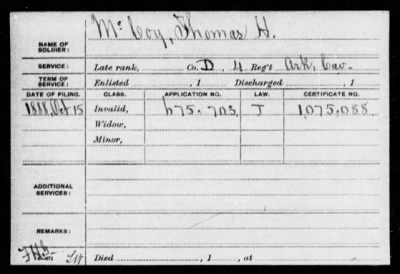 NAME OF SOLDIER: McCoy, Thomas H.
SERVICE: Late rank, Co. D, 4 Reg't Ark, Cav.
TERM OF SERVICE: Enlisted , 1 Discharged , 1
DATE OF FILING. CLASS. APPLICATION NO. LAW. CERTIFICATE NO.
1888, Oct 15 Invalid, 675.703 J 1,075,088
Widow,
Minor,
ADDITIONAL SERVICES:
REMARKS:
Died , 1 , at